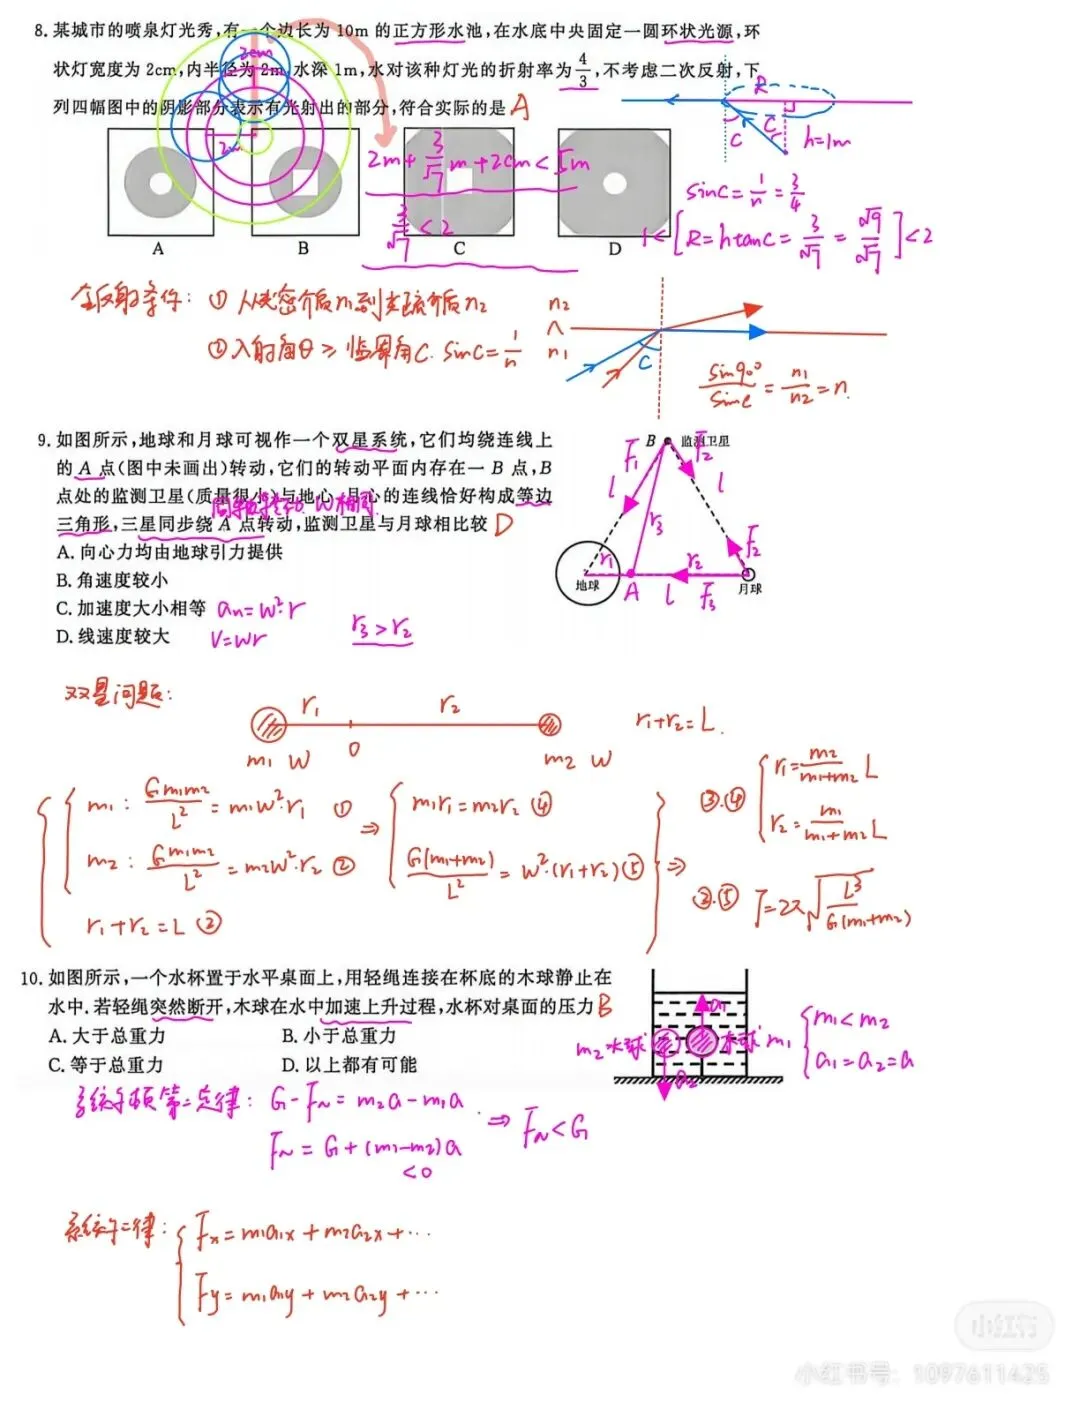 8. 某城市的喷泉灯光秀,有一个边长为 10m 的正方形水池,在水底中央固定一圆环状光源,环
状灯宽度为 2cm,内半径为 2m,水深 1m,水对该种灯光的折射率为 4/3,不考虑二次反射,下
列四幅图中的阴影部分表示有光射出的部分,符合实际的是 A
2cm
2m
2m + 3/√7 m + 2cm < 5m
3/√7 < 2
A B C D
R
C C h=1m
sinC = 1/n = 3/4
1 < [R = h tanC = 3/√7 = √9/√7] < 2
全反射条件: ① 从光密介质n1到光疏介质n2
② 入射角θ ≥ 临界角C. sinC = 1/n
n2
∧
n1
C
sin90°/sinC = n1/n2 = n.
9. 如图所示,地球和月球可视作一个双星系统,它们均绕连线上
的 A 点(图中未画出)转动,它们的转动平面内存在一 B 点,B
点处的监测卫星(质量很小)与地心、月心的连线恰好构成等边
三角形,三星同步绕 A 点转动,监测卫星与月球相比较 D
A. 向心力均由地球引力提供
B. 角速度较小
C. 加速度大小相等 an=w²·r
D. 线速度较大 v=wr r3>r2
B 监测卫星
F1 F2
l l
r3 F2
r1 r2
地球 A l F3 月球
双星问题:
r1 r2 r1+r2=L.
m1 w O m2 w
m1: Gm1m2/L² = m1w²·r1 ①
m2: Gm1m2/L² = m2w²·r2 ②
r1+r2=L ③
⇒ m1r1=m2r2 ④
G(m1+m2)/L² = w²·(r1+r2) ⑤
⇒ ③.④ r1 = m2/(m1+m2) L
r2 = m1/(m1+m2) L
③.⑤ T=2π√(L³/G(m1+m2))
10. 如图所示,一个水杯置于水平桌面上,用轻绳连接在杯底的木球静止在
水中. 若轻绳突然断开,木球在水中加速上升过程,水杯对桌面的压力 B
A. 大于总重力 B. 小于总重力
C. 等于总重力 D. 以上都有可能
a1
m2 水球 木球 m1
a2
m1<m2
a1=a2=a
系统牛顿第二定律: G-FN=m2a-m1a
FN=G+(m1-m2)a ⇒ FN<G
<0
系统牛二律: Fx=m1a1x+m2a2x+···
Fy=m1a1y+m2a2y+···
小红书
小红书号: 1097611425